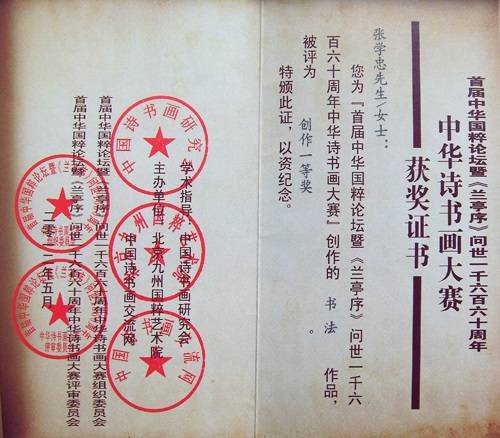 首届中华国粹论坛暨《兰亭序》问世一千六百六十周年
中华诗书画大赛
获奖证书
张学忠先生/女士：
您为『首届中华国粹论坛暨《兰亭序》问世一千六
百六十周年中华诗书画大赛』创作的 书法 作品，
被评为 创作一等奖 。
特颁此证，以资纪念。
学术指导：中国诗书画研究会
主办单位：北京九州国粹艺术院
中国诗书画交流网
首届中华国粹论坛暨《兰亭序》问世一千六百六十周年中华诗书画大赛组织委员会
首届中华国粹论坛暨《兰亭序》问世一千六百六十周年中华诗书画大赛评审委员会
二〇一二年五月